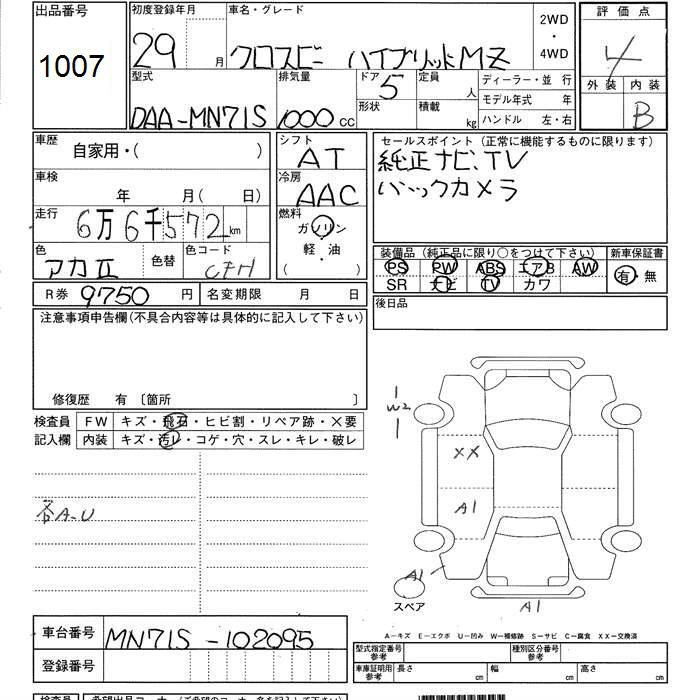 出品番号
1007
初度登録年月
29 月
車名・グレード
クロスビー ハイブリッドMZ
2WD
・
4WD
評価点
4
外装 内装
B
型式
DAA-MN71S
排気量
1000 CC
ドア 5
形状
定員 人
積載 kg
ディーラー・並 行
モデル年式 年
ハンドル 左・右
車歴
自家用・( )
車検
年 月( 日)
走行
6万6千572km
色
アカⅡ
色替
色コード
CFH
シフト
AT
冷房
AAC
燃料
ガソリン
軽・油
( )
セールスポイント(正常に機能するものに限ります)
純正ナビ、TV
バックカメラ
装備品(純正品に限り○をつけて下さい)
PS PW ABS エアB AW
SR ナビ TV カワ
新車保証書
有・無
後日品
R券 9750 円
名変期限 月 日
注意事項申告欄(不具合内容等は具体的に記入して下さい)
修復歴 有 〔箇所 〕
検査員
記入欄
FW キズ・飛石・ヒビ割・リペア跡・×要
内装 キズ・汚レ・コゲ・穴・スレ・キレ・破レ
各A-U
W2
XX
A1
A1
スペア
A1
A-キズ E-エクボ U-凹み W-補修跡 S-サビ C-腐食 XX-交換済
車台番号
MN71S-102095
登録番号
型式指定番号
参考
種別区分番号
参考
車庫証明用
参考
長さ cm 幅 cm 高さ cm
検査員